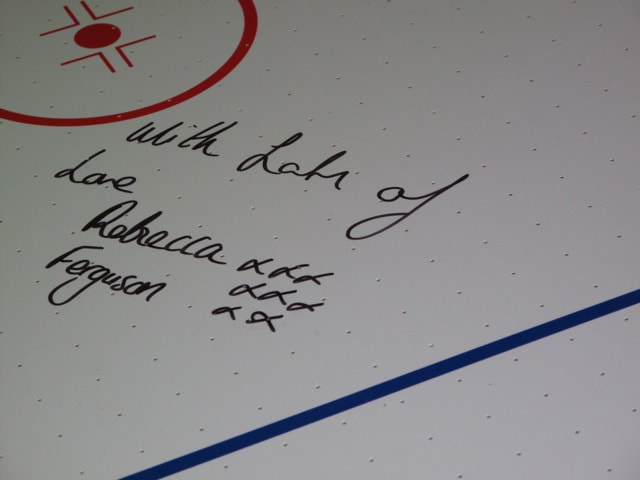 With Lots of
Love
Rebecca xxx
Ferguson xxx
xx